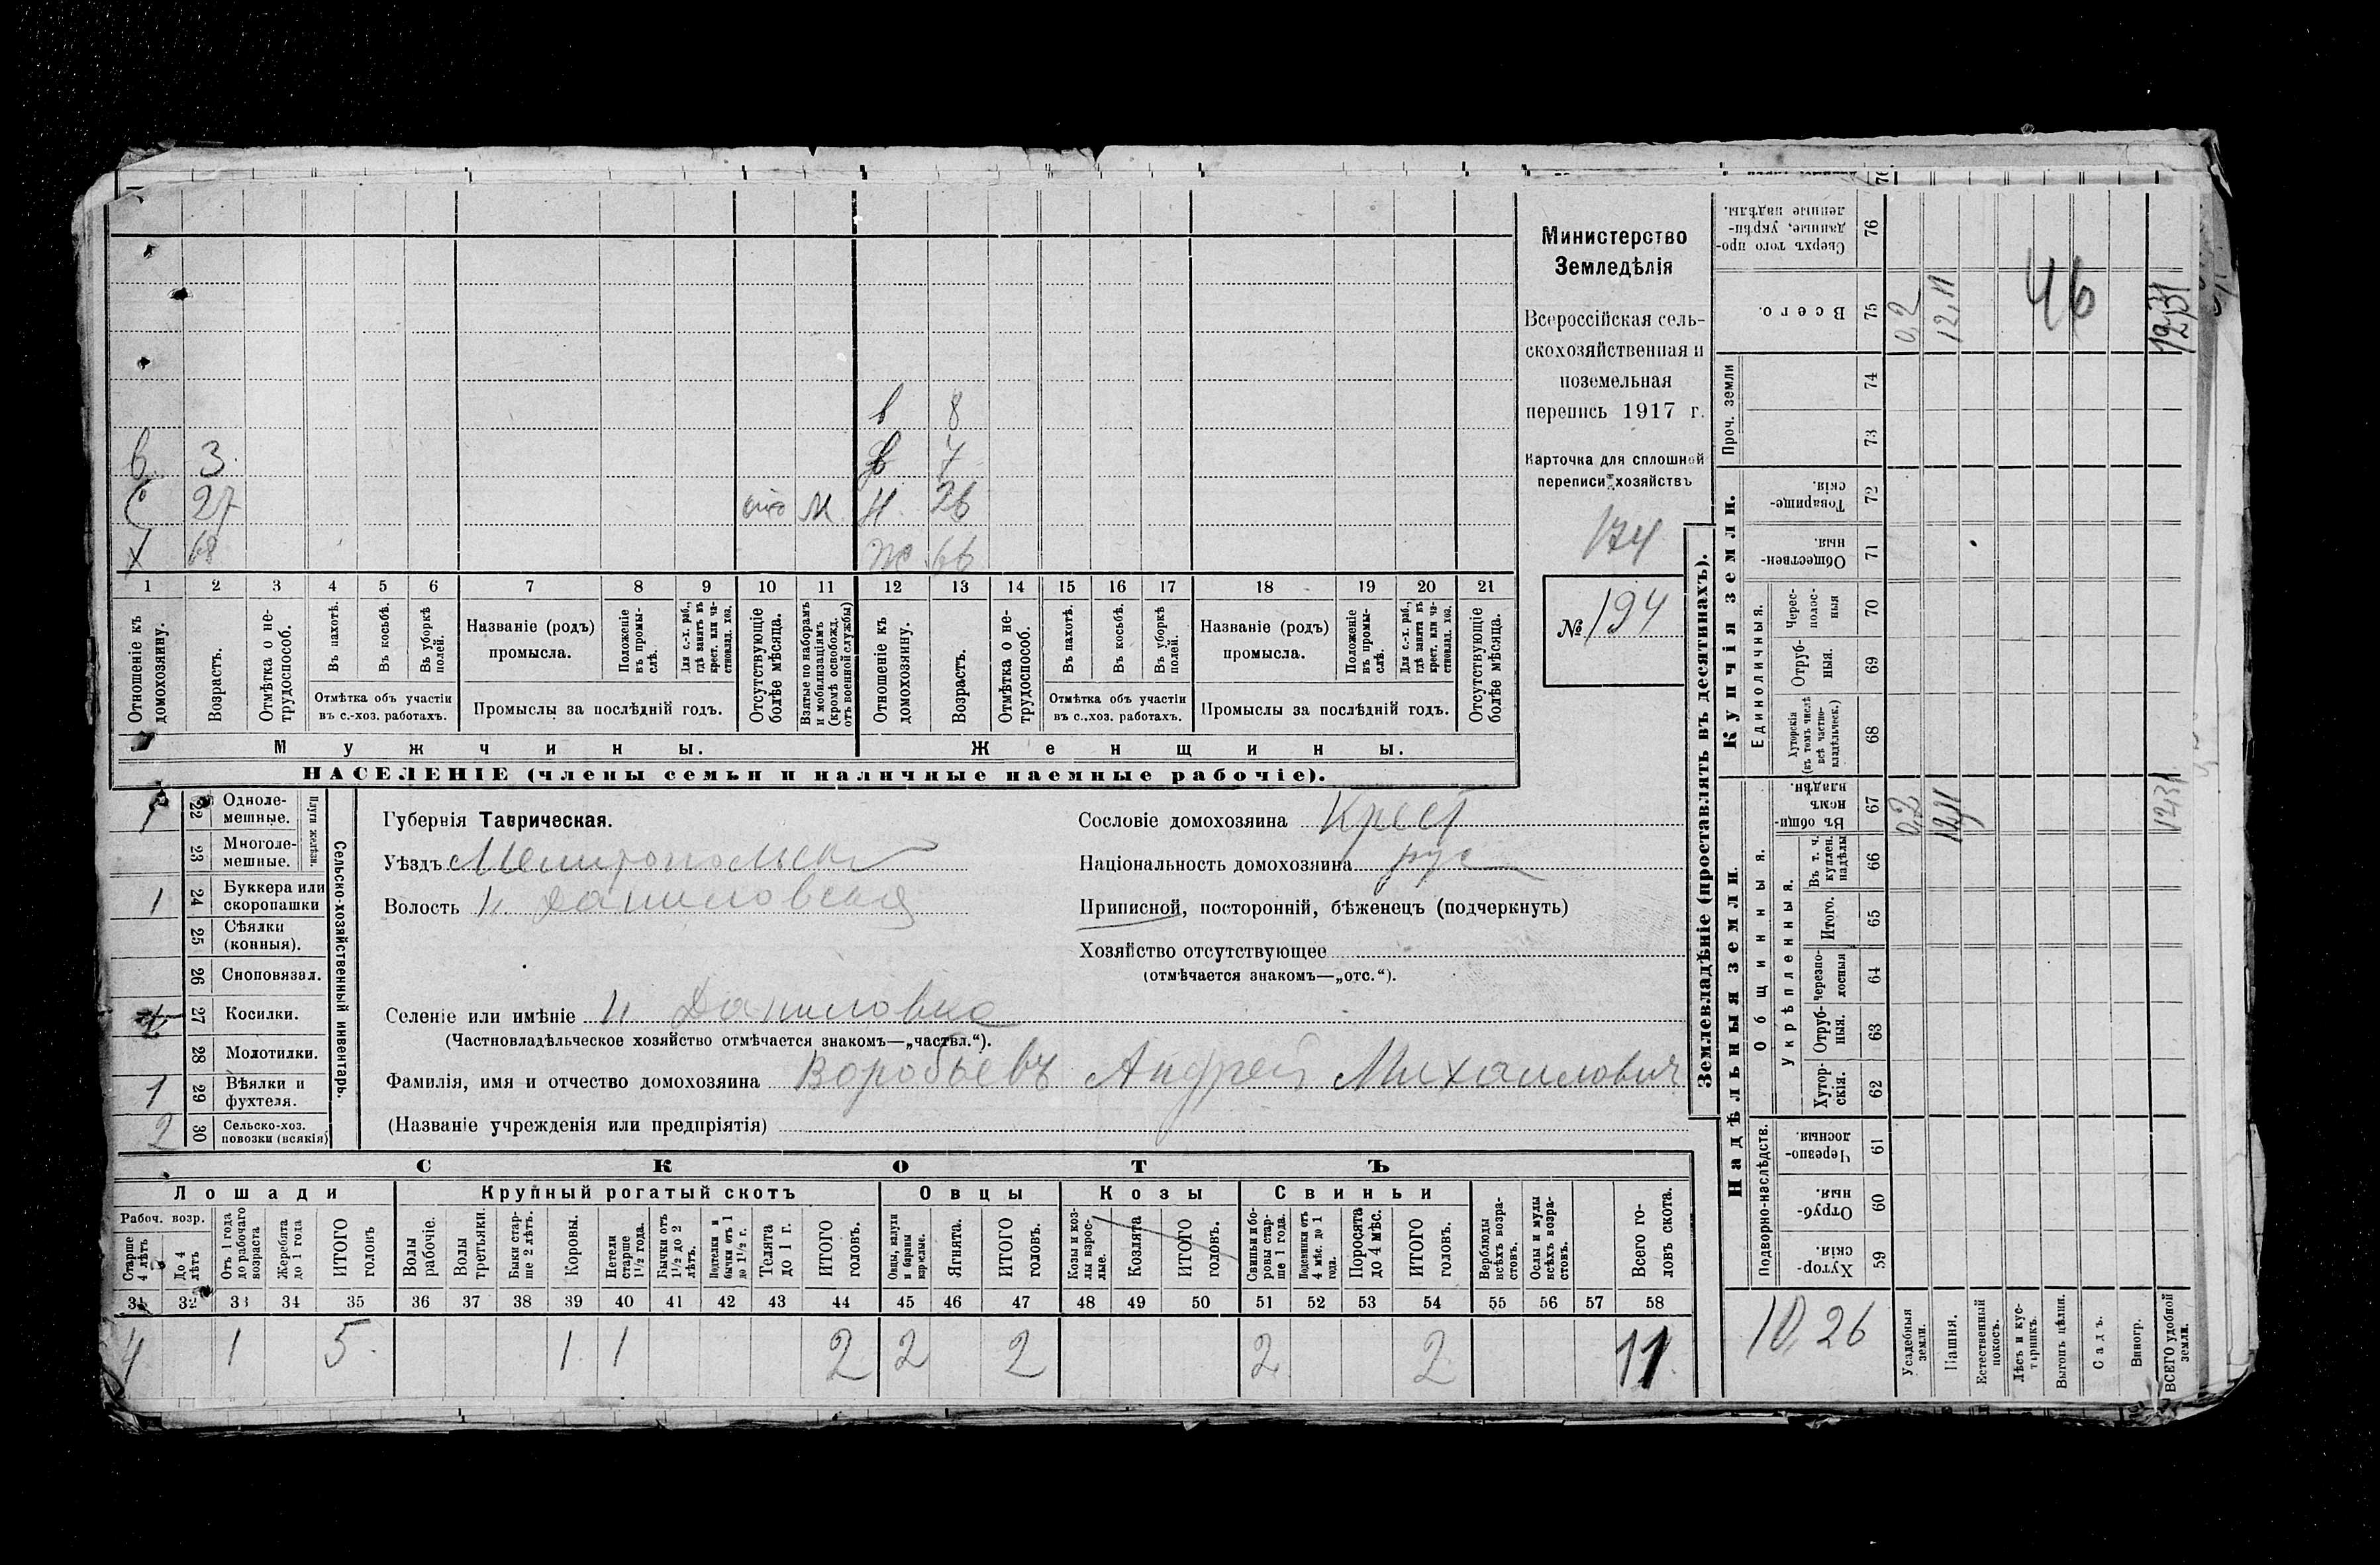 в 8
в. 3. в 7
С 27 отс М Н. 26
Х 68 Ж 66
1 2 3 4 5 6 7 8 9 10 11 12 13 14 15 16 17 18 19 20 21
Отношеніе къ домохозяину.
Возрастъ.
Отмѣтка о не-
трудоспособ.
Въ пахотѣ.
Въ косьбѣ.
Въ уборкѣ
полей.
Отмѣтка объ участіи
въ с.-хоз. работахъ.
Названіе (родъ)
промысла.
Положеніе
въ промы-
слѣ.
Для с.-х. раб.,
гдѣ занятъ въ
крест. или ча-
стновлад. хоз.
Промыслы за послѣдній годъ.
Отсутствующіе
болѣе мѣсяца.
Взятые по наборамъ
и мобилизаціямъ
(кромѣ освобожд.
отъ военной службы)
Отношеніе къ
домохозяину.
Возрастъ.
Отмѣтка о не-
трудоспособ.
Въ пахотѣ.
Въ косьбѣ.
Въ уборкѣ
полей.
Отмѣтка объ участіи
въ с..хоз. работахъ.
Названіе (родъ)
промысла.
Положеніе
въ промы-
слѣ.
Для с.-х. раб.,
гдѣ занята въ
крест. или ча-
стновлад. хоз.
Промыслы за послѣдній годъ.
Отсутствующіе
болѣе мѣсяца.
Мужчины.
Женщины.
НАСЕЛЕНІЕ (члены семьи и наличные наемные рабочіе).
Министерство
Земледѣлія
Всероссійская сель-
скохозяйственная и
поземельная
перепись 1917 г.
Карточка для сплошной
переписи хозяйствъ
174
№ 194
1 22 Одноле-
мешные.
23 Многоле-
мешные.
Плуги желѣзн.
1 24 Буккера или
скоропашки
25 Сѣялки
(конныя).
26 Сноповязал.
27 Косилки.
28 Молотилки.
1 29 Вѣялки и
фухтеля.
2 30 Сельско-хоз.
повозки (всякія)
Сельско-хозяйственный инвентарь.
Губернія Таврическая.
Уѣздъ Мелитопольск
Волость Н. Даниловская
Селеніе или имѣніе Н Даниловка
(Частновладѣльческое хозяйство отмѣчается знакомъ—„частвл.“).
Фамилія, имя и отчество домохозяина Воробьевъ Андрей Михаилович
(Названіе учрежденія или предпріятія)
Сословіе домохозяина Крест
Національность домохозяина рус
Приписной, посторонній, бѣженецъ (подчеркнуть)
Хозяйство отсутствующее
(отмѣчается знакомъ—„отс.“).
СКОТЪ
Лошади
Крупный рогатый скотъ
Овцы
Козы
Свиньи
Рабоч. возр.
Старше
4 лѣтъ
До 4
лѣтъ
Отъ 1 года
до рабочаго
возраста
Жеребята
до 1 года
ИТОГО
головъ
Волы
рабочіе.
Волы
третьяки.
Быки стар-
ше 2 лѣтъ.
Коровы.
Нетели
старше
1½ года.
Бычки отъ
1½ до 2
лѣтъ.
Подтелки и
бычки отъ 1
до 1½ г.
Телята
до 1 г.
ИТОГО
головъ.
Овцы, валухи
и бараны
взрослые.
Ягнята.
ИТОГО
головъ.
Козы и коз-
лы взрос-
лые.
Козлята
ИТОГО
головъ.
Свиньи и бо-
ровы стар-
ше 1 года.
Подсвинки отъ
4 мѣс. до 1
года.
Поросята
до 4 мѣс.
ИТОГО
головъ.
Верблюды
всѣхъ возра-
стовъ.
Ослы и мулы
всѣхъ возра-
стовъ.
Всего го-
ловъ скота.
31 32 33 34 35 36 37 38 39 40 41 42 43 44 45 46 47 48 49 50 51 52 53 54 55 56 57 58
4 1 5. 1. 1 2 2 2 2 2 11
Землевладѣніе (проставлять въ десятинахъ).
Купчія земли.
Надѣльныя земли.
Сверхъ того про-
данные, укрѣп-
ленные надѣлы.
76
Всего.
75 0,2 12,11 46 12,31
Проч. земли
74
73
Товарище-
скія.
72
Обществен-
ныя.
71
Единоличныя.
Черес-
полос-
ныя
70
Отруб-
ныя.
69
Хуторскія
(въ томъ числѣ
всѣ частно-
владѣльческ.)
68
Общинныя.
Въ общи-
номъ
владѣн.
67 0,2 12,11 12,31
Въ т. ч.
куплен.
надѣлы
66
Укрѣпленныя.
Итого.
65
Черезпо-
лосныя
64
Отруб-
ныя.
63
Хутор-
скія.
62
Подворно-наслѣдств.
Черезпо-
лосныя.
61
Отруб-
ныя.
60
Хутор-
скія.
59
10,26
Усадебныя
земли.
Пашня.
Естественный
покосъ.
Лѣсъ и кус-
тарникъ.
Выгонъ цѣлин.
Садъ.
Виногр.
ВСЕГО удобной
земли.